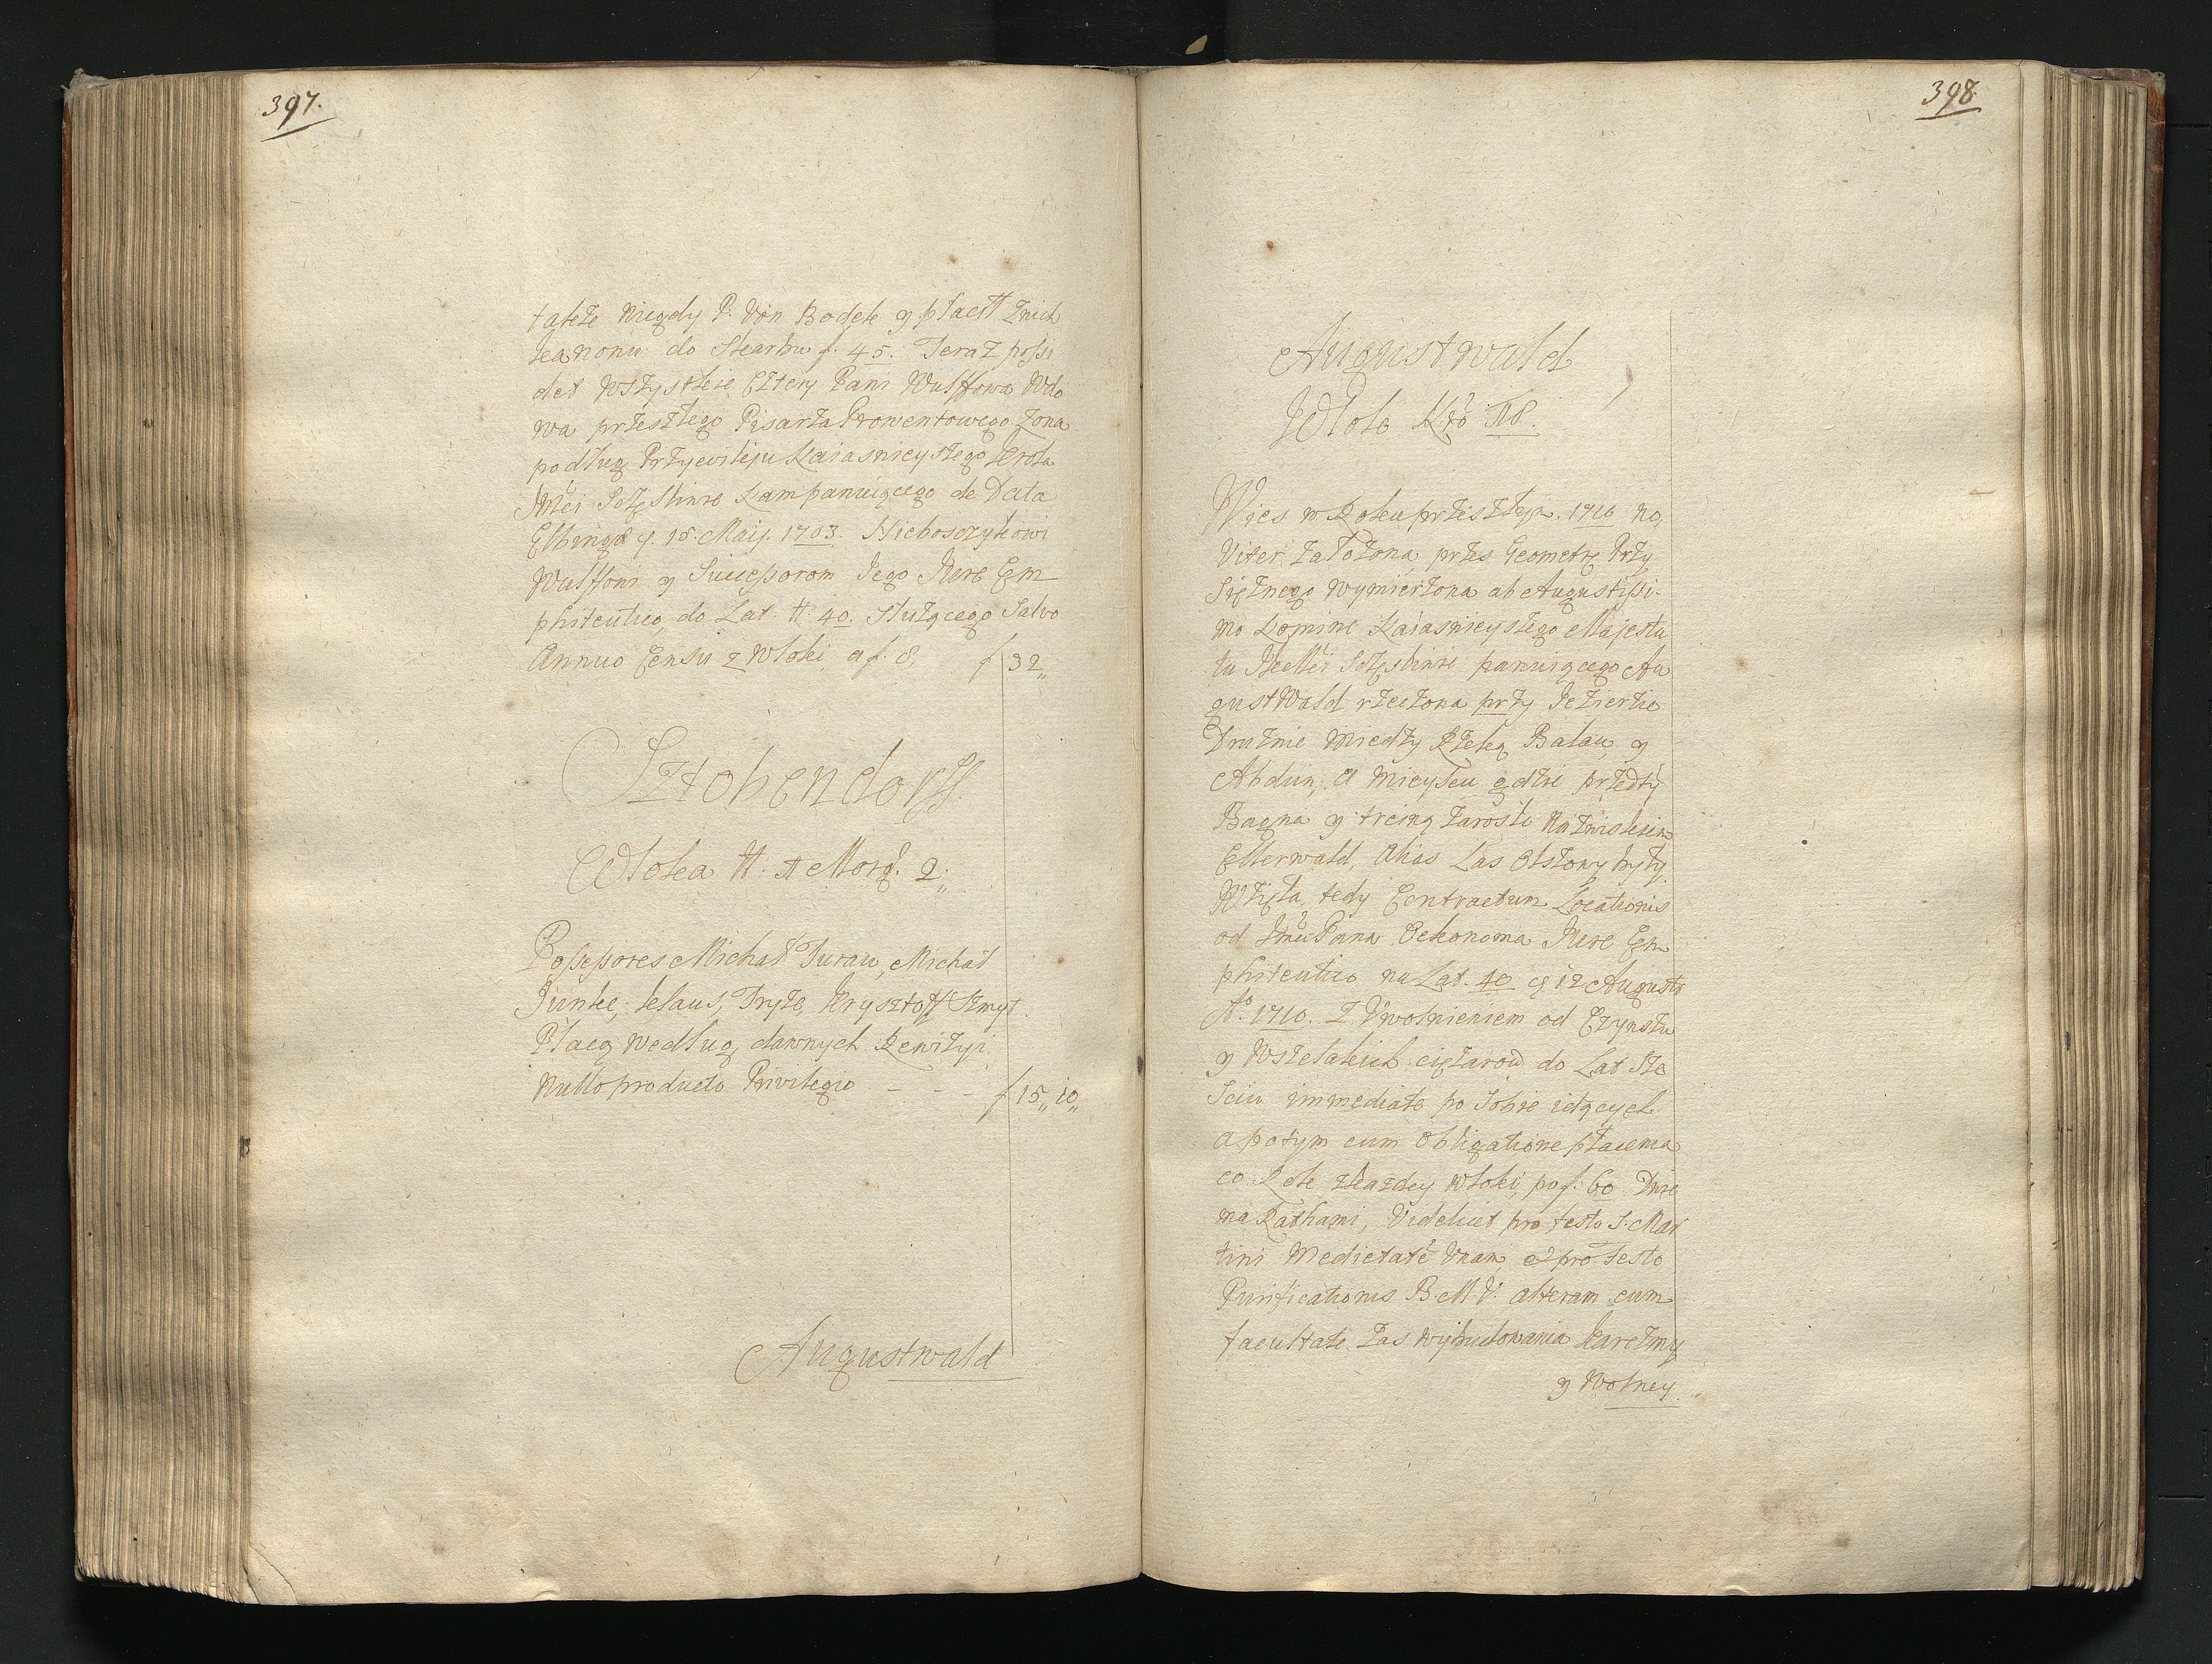 397.
także niegdy P. Von Bodek y płacił z nich
kanonu do Skarbu f. 45. Teraz possi
det wszystkie cztery Pani Wulffowa Wdo
wa przeszłego Pisarza Prowentowego Zona
podług Przywileju Naiasnieyszego Krola
Jmci Szczęśliwie nam panuiącego de Data
Elbingæ 15. Maij. 1703. Nieboszczykowi
Wulffowi y Successorom Jego Jure Em
phiteutico, do Lat 40. służącego Salvo
Annuo Censu z Włoki, a f. 8, f 32,,
Sztobendorff
Włoka Morg. 2,,
Possessores Michał Turau, Michał
Junke, Klaus, Tryze, Krysztoff Szmyt
Płacą według dawnych Rewizyi
Nullo producto Privilegio - - - f 15,, 10,,
Augustwald
398
Augustwald
Włok Nro 18.
Wies w Roku przeszłym 1710 no,
viter założona, przez Geometrę Przy
siężnego wymierzona ab Augustissi-
mo Nomine Naiasnieyszego Majesta
tu Szczęśliwie panuiącego Au
gustwald rzeczona przy Jezierze
Druznie między Rzeką Balau, y
Abdun, a mieyscu gdzie przedty
Bagna y trciną zarosłe nazwiskiem
Ellerwald, alias Las Olszowy były
Wzięła tedy Contractum Locationis
od Jmci Pana Oekonoma Jure Em
phiteutico na Lat. 40 12 Augusti
Aº. 1710. Z Uwolnieniem od Czynszu
y Wszelakich ciężarow do Lat Sze
sciu immediate po sobie idących
a potym cum Obligatione płacenia
co Rok z każdey włoki, po f. 60 Dwie
ma Rathami, Videlicet pro festo S. Mar
tini Medietatẽ Unam, et pro festo
Purificationis B. M. V. alteram cum
facultate zas wybudowania Karczmy
y Wolney